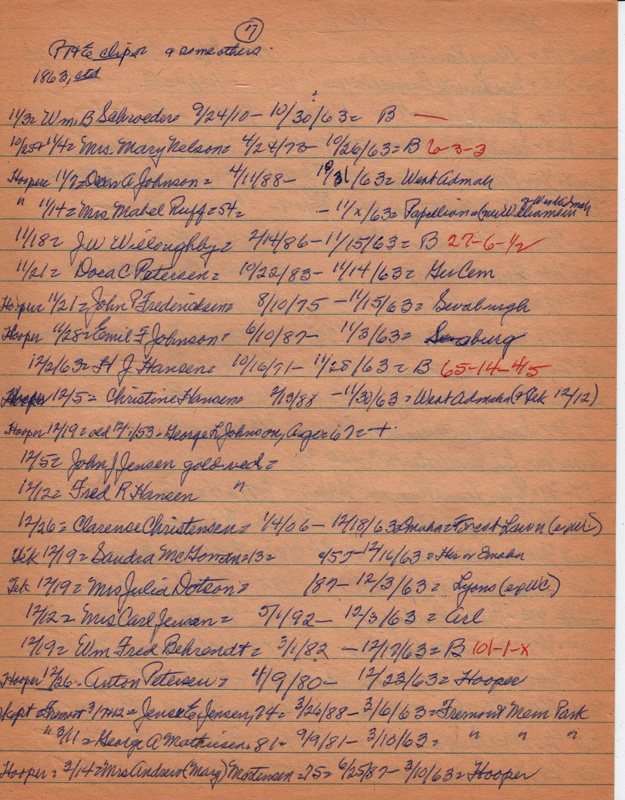 7
PT+E clips & some others.
1863, ctd
11/3= Wm. B Schroeder= 9/24/10 - 10/30/63= B —
10/25+ 11/4= Mrs. Mary Nelson= 4/24/73 - 10/26/63= B 6-3-3
Hooper 11/7= A Johnson= 4/11/88 - 10/31/63= West Admah
" 11/14= Mrs Mabel Ruff= 54= - 11/x/63= Papillion=
11/18= J W Willoughby= 2/14/86 - 11/15/63= B 27-6-1/2
11/21= Dora C Petersen= 10/22/83 - 11/14/63= Cem
Hooper 11/21= John P Fredericksen= 8/10/75 - 11/15/63= Swaburgh
Hooper 11/28= Emil F Johnson= 6/10/87 - 11/3/63= Swaburg
12/2/63= H J Hansen= 10/16/71 - 11/28/63= B 65-14-4/5
Hooper 12/5= Christine Hansen= 2/13/88 - 11/30/63= West Admah (+Tek 12/12)
Hooper 12/19= old 12/1/53= George L Johnson, age 67= +
12/5= John J Jensen gold wed=
12/12= Fred R Hansen "
12/26= Clarence Christensen= 1/4/06 - 12/18/63= Omaha= Forest Lawn
Tek 12/19= Sandra McGowan= 13= - 12/16/63= Omaha
Tek 12/19= Mrs Julia Dotson= /87 - 12/3/63= Lyons
12/12= Mrs Carl Jensen= 5/1/92 - 12/3/63= Arl
12/19= Wm Fred Behrendt= 3/1/82 - 12/17/63= B 101-1-x
Hooper 12/26= Anton Petersen= 4/9/80 - 12/23/63= Hooper
Fremont 3/7+12= Jens E Jensen, 74= 3/26/88 - 3/6/63= Fremont Mem Park
" 3/11= George A Mathiesen, 81= 9/9/81 - 3/10/63= " " "
Hooper= 3/14= Mrs Andrew (Mary) Mortensen= 75= 6/25/87 - 3/10/63= Hooper